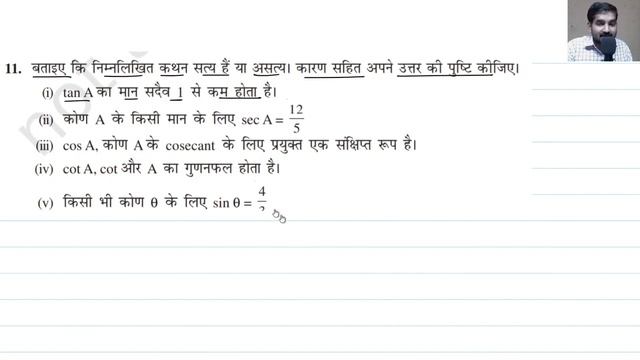 11. बताइए कि निम्नलिखित कथन सत्य हैं या असत्य। कारण सहित अपने उत्तर की पुष्टि कीजिए।
(i) tan A का मान सदैव 1 से कम होता है।
(ii) कोण A के किसी मान के लिए sec A = 12/5
(iii) cos A, कोण A के cosecant के लिए प्रयुक्त एक संक्षिप्त रूप है।
(iv) cot A, cot और A का गुणनफल होता है।
(v) किसी भी कोण θ के लिए sin θ = 4/3
not